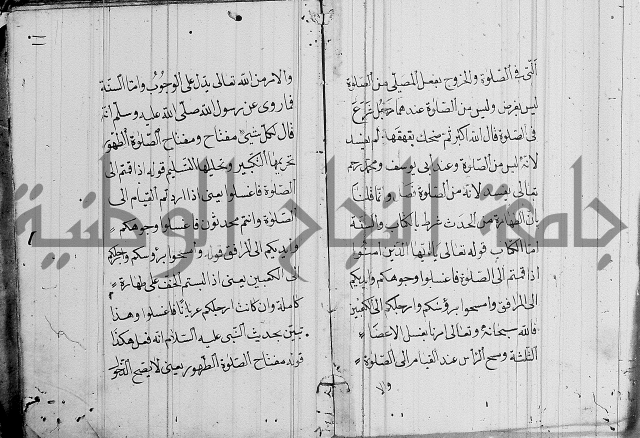 التى فى الصلوة والخروج بفعل المصلى من الصلوة
ليس بفرض وليس من الصلوة عندهما رجل شرع
فى الصلوة قال الله اكبر ثم ضحك بقهقهة لم يفسد
لانه ليس من الصلوة وعند ابى يوسف ومحمد رحمهم
تعالى يفسد لانه من الصلوة وانما قلنا
بان الطهارة من الحدث شرط بالكتاب والسنة
اما الكتاب قوله تعالى يا ايها الذين امنوا
اذا قمتم الى الصلوة فاغسلوا وجوهكم وايديكم
الى المرافق وامسحوا برؤسكم وارجلكم الى الكعبين
فالله سبحانه وتعالى امرنا بغسل الاعضاء
الثلثة ومسح الرأس عند القيام الى الصلوة
والا
والامر من الله تعالى يدل على الوجوب واما السنة
فما روى عن رسول الله صلى الله عليه وسلم انه
قال لكل شئ مفتاح ومفتاح الصلوة الطهور
تحريمها التكبير وتحليلها التسليم قوله اذا قمتم الى
الصلوة فاغسلوا يعنى اذا اردتم القيام الى
الصلوة وانتم محدثون فاغسلوا وجوهكم
وايديكم الى المرافق قوله وامسحوا برؤسكم وارجلكم
الى الكعبين يعنى اذا لبستم الخف على طهارة
كاملة وان كانت ارجلكم عريانا فاغسلوا وهذا
تبين بحديث النبى عليه السلام انه فعل هكذا
قوله مفتاح الصلوة الطهور يعنى لا يصح
جامعة النجاح الوطنية